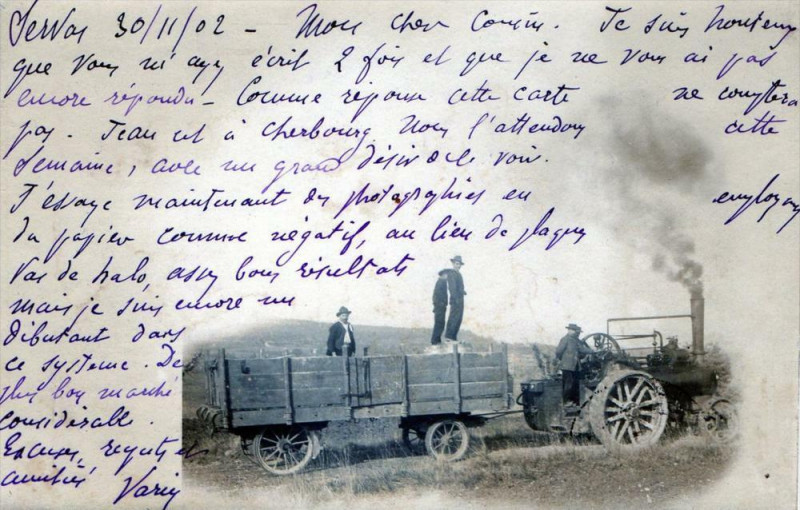 Servas 30/11/02 - Mon cher Cousin. Je suis honteux
que vous m'ayez écrit 2 fois et que je ne vous ai pas
encore répondu - Comme réponse cette carte ne comptera
pas. Jean est à Cherbourg. Nous l'attendons cette
semaine, avec un grand désir de le voir.
J'essaye maintenant des photographies en employant
du papier comme négatif, au lieu de plaques
Pas de halo, assez bons résultats
mais je suis encore un
débutant dans
ce système. De
plus bon marché
considérable.
Excuses, regrets et
amitiés